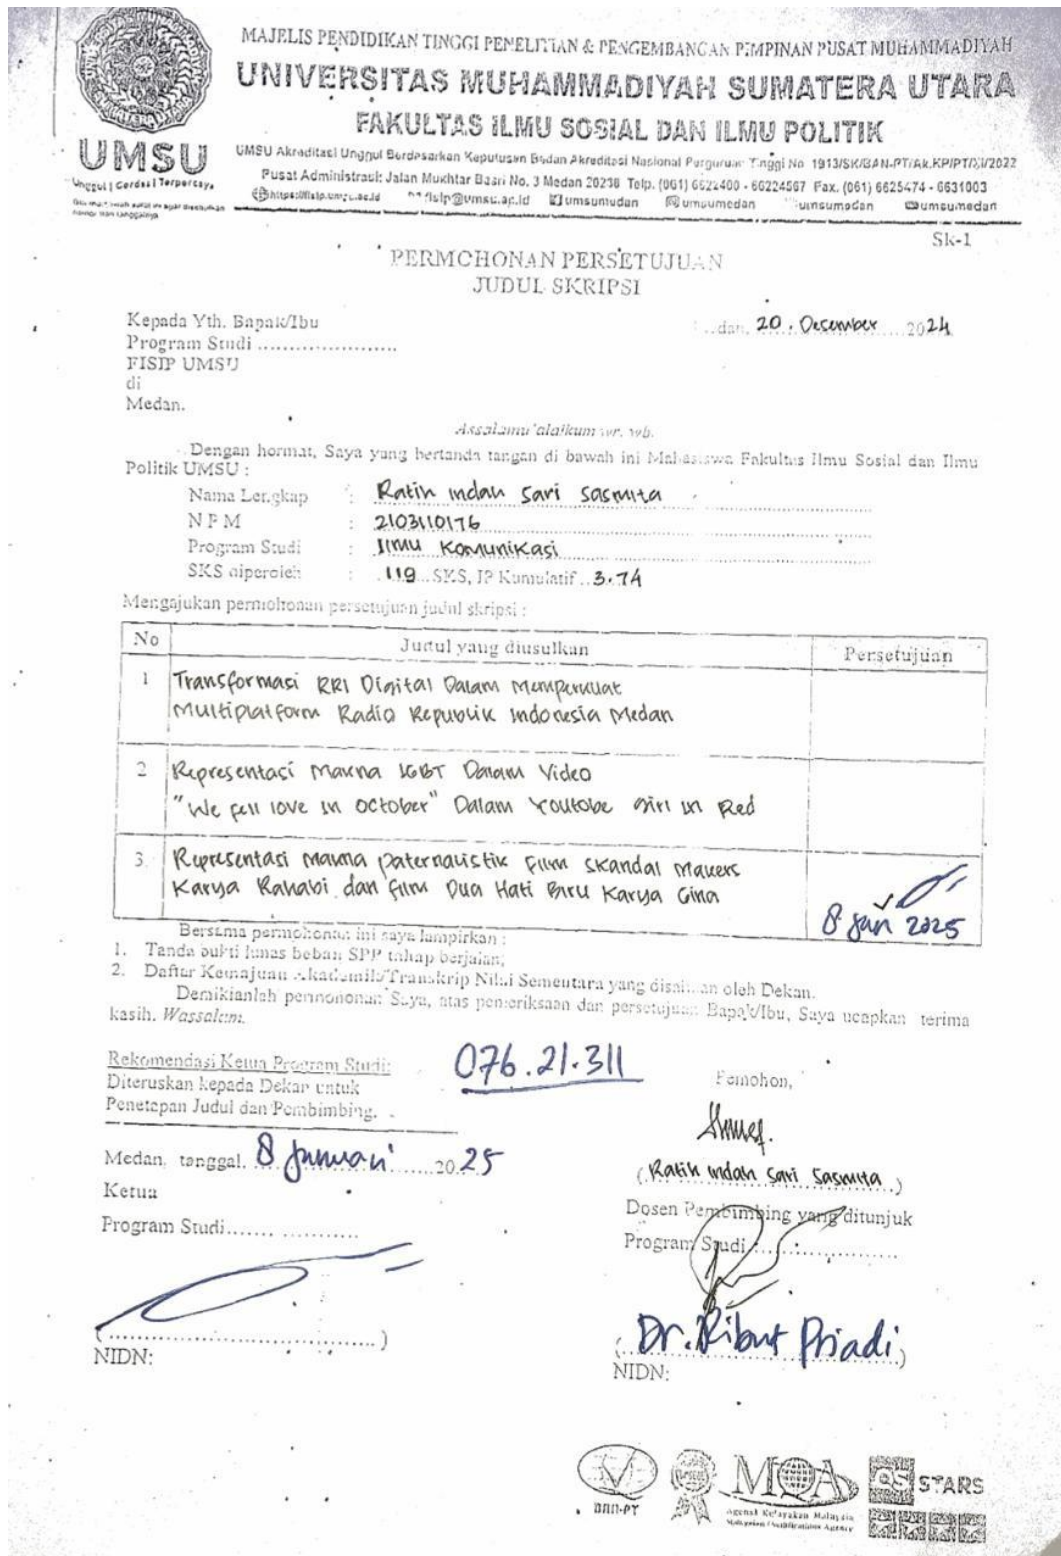 MAJELIS PENDIDIKAN TINGGI PENELITIAN & PENGEMBANGAN PIMPINAN PUSAT MUHAMMADIYAH
UNIVERSITAS MUHAMMADIYAH SUMATERA UTARA
FAKULTAS ILMU SOSIAL DAN ILMU POLITIK
UMSU
Unggul | Cerdas | Terpercaya
UMSU Akreditasi Unggul Berdasarkan Keputusan Badan Akreditasi Nasional Perguruan Tinggi No. 1913/SK/BAN-PT/Ak.KP/PT/XI/2022
Pusat Administrasi: Jalan Mukhtar Basri No. 3 Medan 20238 Telp. (061) 6622400 - 66224567 Fax. (061) 6625474 - 6631003
https://fisip.umsu.ac.id fisip@umsu.ac.id umsumedan umsumedan umsumedan umsumedan
Sk-1
PERMOHONAN PERSETUJUAN
JUDUL SKRIPSI
Kepada Yth. Bapak/Ibu
dan, 20. Desember 2024
Program Studi ......................
FISIP UMSU
di
Medan.
Assalamu'alaikum wr. wb.
Dengan hormat, Saya yang bertanda tangan di bawah ini Mahasiswa Fakultas Ilmu Sosial dan Ilmu
Politik UMSU :
Nama Lengkap : Ratih indah Sari Sasmita
N P M : 2103110176
Program Studi : Ilmu Komunikasi
SKS diperoleh : 119 SKS, IP Kumulatif 3.74
Mengajukan permohonan persetujuan judul skripsi :
No Judul yang diusulkan Persetujuan
1 Transformasi RRI Digital Dalam Memperkuat
Multiplatform Radio Republik Indonesia Medan
2 Representasi Makna LGBT Dalam Video
"We fell love in october" Dalam Youtobe Girl in Red
3. Representasi makna paternalistik film skandal makers
Karya Rahabi dan film Dua Hati Biru Karya Gina
8 Jan 2025
Bersama permohonan ini saya lampirkan :
1. Tanda bukti lunas beban SPP tahap berjalan;
2. Daftar Kemajuan Akademik/Transkrip Nilai Sementara yang disahkan oleh Dekan.
Demikianlah permohonan Saya, atas pemeriksaan dan persetujuan Bapak/Ibu, Saya ucapkan terima
kasih. Wassalam.
Rekomendasi Ketua Program Studi:
076.21.311
Diteruskan kepada Dekan untuk
Penetapan Judul dan Pembimbing.
Pemohon,
Medan, tanggal. 8 Januari 2025
(Ratih indah Sari Sasmita)
Ketua
Program Studi....... ............
Dosen Pembimbing yang ditunjuk
Program Studi ....................
(....................................)
NIDN:
(Dr. Ribut Priadi)
NIDN:
BAN-PT
MQA
Agensi Kelayakan Malaysia
Malaysian Qualifications Agency
QS STARS